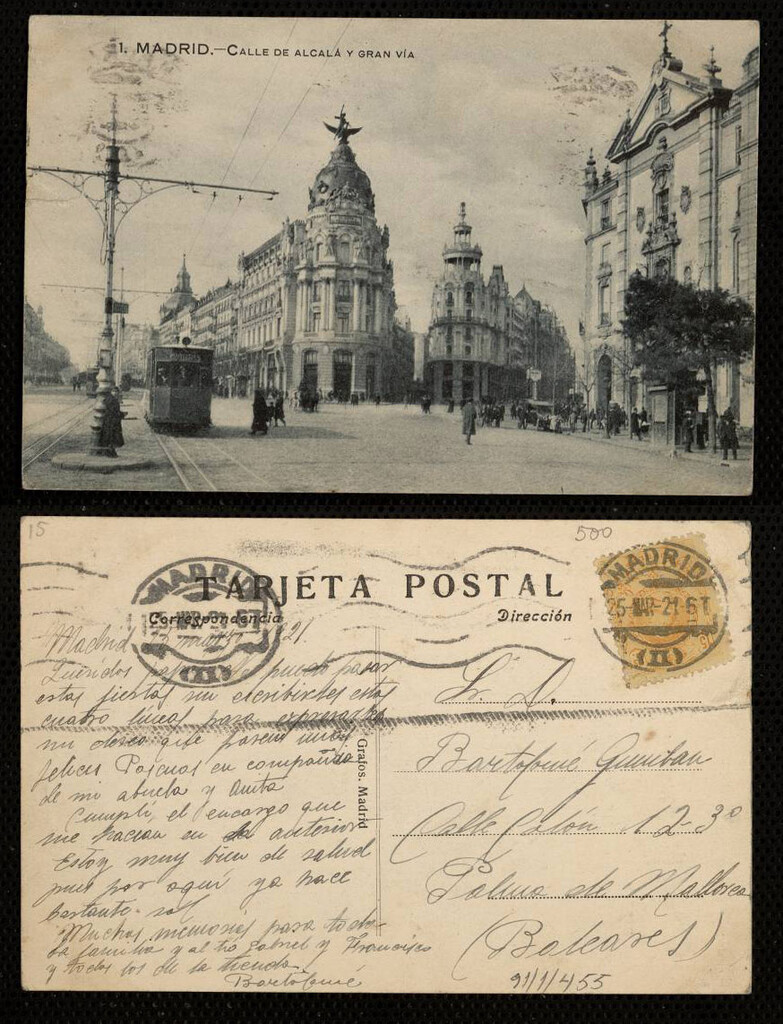 1. MADRID.—CALLE DE ALCALÁ Y GRAN VÍA
15
500
TARJETA POSTAL
Correspondencia
Dirección
MADRID
25-MAR-21-6T
(II)
MADRID
25-MAR-21-6T
(II)
Madrid 25 marzo 21
Queridos puedo pasar
estas fiestas sin escribirles estas
cuatro líneas para expresarles
mi deseo que pasen unas
felices Pascuas en compañía
de mi abuela y Anita
Cumplí el encargo que
me hacían en la anterior
Estoy muy bien de salud
pues por aquí ya hace
bastante sol
Muchas memorias para toda
la familia y al tío Gabriel y Francisco
y todos los de la tienda
Bartolomé
Grafos. Madrid
Sr. D.
Bartolomé
Calle Colón 12-3º
Palma de Mallorca
(Baleares)
91/1/455